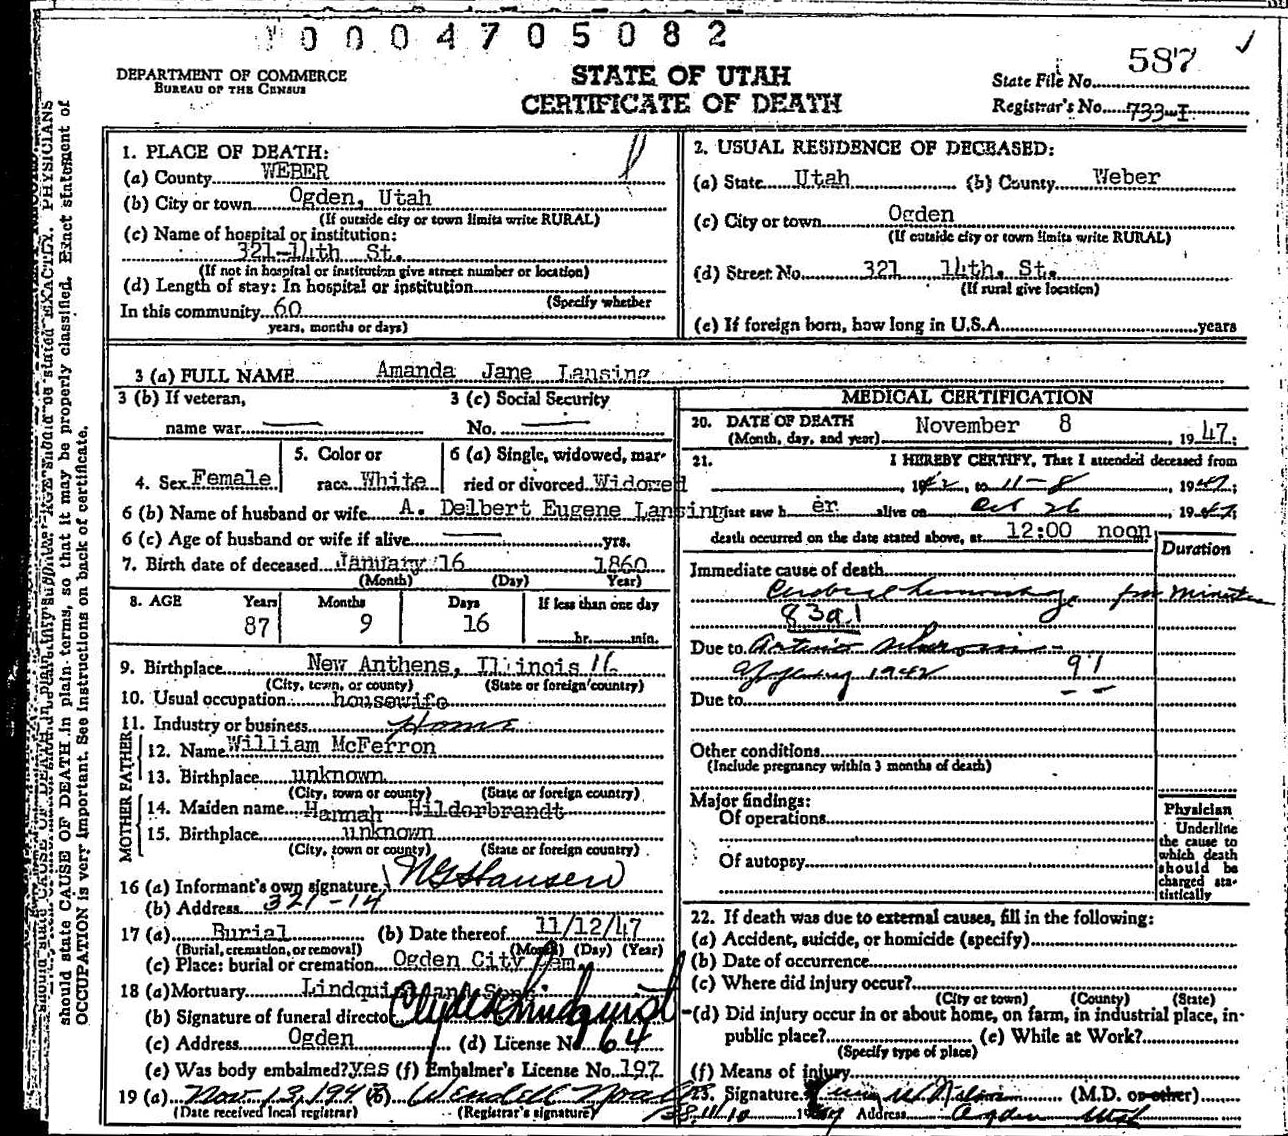 0004705082
587
DEPARTMENT OF COMMERCE
BUREAU OF THE CENSUS
STATE OF UTAH
CERTIFICATE OF DEATH
State File No.
Registrar's No. 733-I
1. PLACE OF DEATH:
(a) County WEBER
(b) City or town Ogden, Utah
(If outside city or town limits write RURAL)
(c) Name of hospital or institution:
321-14th St.
(If not in hospital or institution give street number or location)
(d) Length of stay: In hospital or institution
(Specify whether
In this community 60
years, months or days)
2. USUAL RESIDENCE OF DECEASED:
(a) State Utah (b) County Weber
(c) City or town Ogden
(If outside city or town limits write RURAL)
(d) Street No. 321 14th. St.
(If rural give location)
(e) If foreign born, how long in U.S.A. years
3 (a) FULL NAME Amanda Jane Lansing
3 (b) If veteran,
name war
3 (c) Social Security
No.
4. Sex Female
5. Color or
race White
6 (a) Single, widowed, mar-
ried or divorced Widowed
6 (b) Name of husband or wife A. Delbert Eugene Lansing
6 (c) Age of husband or wife if alive yrs.
7. Birth date of deceased January 16 1860
(Month) (Day) Year)
8. AGE Years Months Days If less than one day
87 9 16 hr. min.
9. Birthplace New Anthens, Illinois 16
(City, town, or county) (State or foreign country)
10. Usual occupation housewife
11. Industry or business Home
FATHER
12. Name William McFerron
13. Birthplace unknown
(City, town or county) (State or foreign country)
MOTHER
14. Maiden name Hannah Hilderbrandt
15. Birthplace unknown
(City, town or county) (State or foreign country)
16 (a) Informant's own signature N G Hansen
(b) Address 321-14
17 (a) Burial (b) Date thereof 11/12/47
(Burial, cremation, or removal) (Month) (Day) (Year)
(c) Place: burial or cremation Ogden City Cem
18 (a) Mortuary Lindquist and Sons
(b) Signature of funeral director Clyde Lindquist
(c) Address Ogden (d) License No 64
(e) Was body embalmed? yes (f) Embalmer's License No. 197
19 (a) Nov. 13, 1947 (b) Wendell
(Date received local registrar) (Registrar's signature)
MEDICAL CERTIFICATION
20. DATE OF DEATH November 8
(Month, day, and year) , 1947;
21. I HEREBY CERTIFY, That I attended deceased from
, 1942, to 11-8 1947;
I last saw her alive on Oct 26 1947;
death occurred on the date stated above, at 12:00 noon
Duration
Immediate cause of death
Cerebral hemorrhage few minutes
83a1
Due to
1942 97
Due to
Other conditions
(Include pregnancy within 3 months of death)
Major findings:
Of operations
Of autopsy
Physician
Underline
the cause to
which death
should be
charged sta-
tistically
22. If death was due to external causes, fill in the following:
(a) Accident, suicide, or homicide (specify)
(b) Date of occurrence
(c) Where did injury occur?
(City or town) (County) (State)
(d) Did injury occur in or about home, on farm, in industrial place, in-
public place? (e) While at Work?
(Specify type of place)
(f) Means of injury
23. Signature (M.D. or other)
Address Ogden Utah
should state CAUSE OF DEATH in plain terms, so that it may be properly classified. Exact statement of
OCCUPATION is very important. See instructions on back of certificate.